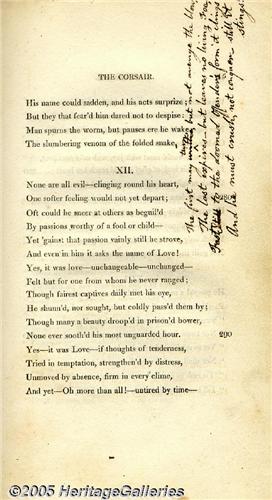 THE CORSAIR.
His name could sadden, and his acts surprize;
But they that fear'd him dared not to despise:
Man spurns the worm, but pauses ere he wake
The slumbering venom of the folded snake,
The first may turn but not avenge the blow
The last expires—but leaves no living Foe
Fast to the doomed offenders form it clings
And he may crush, not conquer still it
stings!
XII.
None are all evil—clinging round his heart,
One softer feeling would not yet depart;
Oft could he sneer at others as beguil'd
By passions worthy of a fool or child—
Yet 'gainst that passion vainly still he strove,
And even in him it asks the name of Love!
Yes, it was love—unchangeable—unchanged—
Felt but for one from whom he never ranged;
Though fairest captives daily met his eye,
He shunn'd, nor sought, but coldly pass'd them by;
Though many a beauty droop'd in prison'd bower,
None ever sooth'd his most unguarded hour. 290
Yes—it was Love—if thoughts of tenderness,
Tried in temptation, strengthen'd by distress,
Unmoved by absence, firm in every clime,
And yet—Oh more than all!—untired by time—
©2005 HeritageGalleries